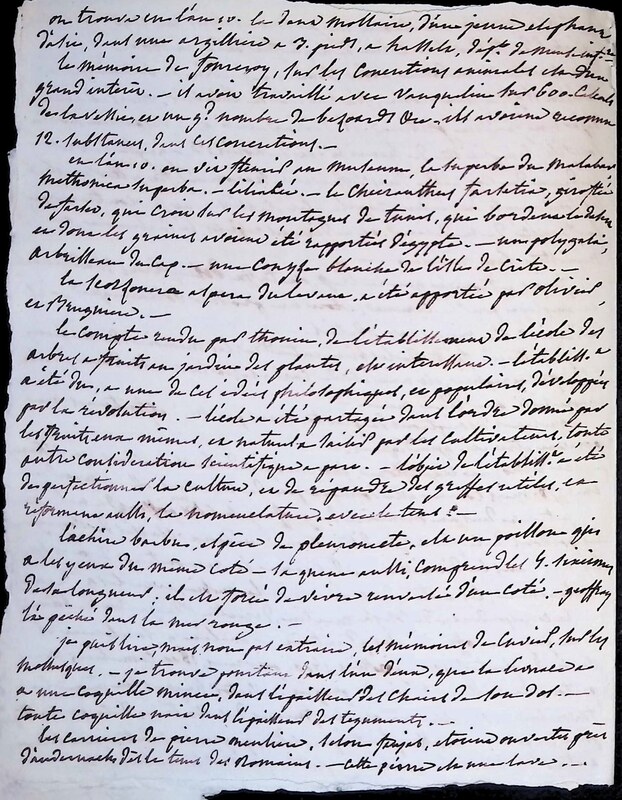 on trouva en l'an 10. le dent mollaire, d'une jeune elephant
d'asie, dans une argilliere a 7. pieds, a hasselt, dépt. de meuse inf.re
le memoire de fourcroy, sur les concretions animales est d'un
grand interêt. — il avoit travaillé avec vauquelin sur 600. calculs
de la vessie, et un gd. nombre de besoards &c. ils avoient reconnu
12. substances, dans ces concretions. —
en l'an 10. on vit fleurir au museum, la superbe du malabar
methonica superba. — liliacée. — le cheiranthus farsetia, giroflée
de farset, qui croit sur les montagnes de tunis, qui bordent le desert
et dont les graines avoient été rapportées d'égypte. — un polygala,
arbrisseau du cap. — une conyse blanche de l'isle de crête. —
la scorsonera aspera du levant, a été apportée par olivier,
et bruguiere. —
le compte rendu par thouin, de l'établissement de l'école des
arbres a fruits au jardin des plantes, est interessant. — l'établiss.
a été du, a une de ces idées philosophiques, et populaires, développées
par la révolution. — l'école a été partagée dans l'ordre donné par
les fruits eux mêmes, et naturel a saisir par les cultivateurs, toute
autre consideration scientifique a part. — l'objet de l'établiss.t a été
de perfectionner la culture, et de répandre des greffes utiles, en
reformant aussi, la nomenclature.
l'achire barbu, espèce de pleuronecte, est un poisson qui
a les yeux du même coté — sa queue aussi, comprend les
de sa longueur; il est forcé de vivre renversé d'un coté. — geoffroy
l'a pêché dans la mer rouge. —
je puis lire, mais non pas extraire, les mémoires de cuvier, sur les
mollusques. — je trouve pourtant dans l'un d'eux, que la
a une coquille mince, dans l'epaisseur des chairs de son dos. —
toute coquille nait dans l'épaisseur des teguments. —
les carrieres de pierre meuliere, selon faujas, etoient ouvertes près
d'andernach dès le tems des Romains. — cette pierre est une lave. —